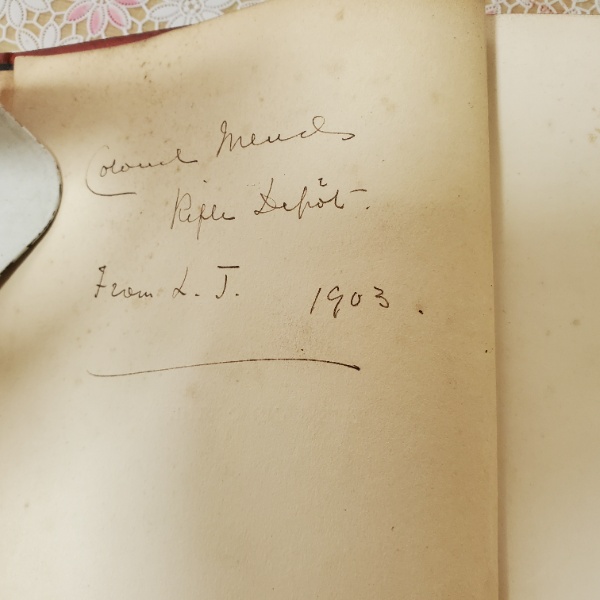 Colonel Mends
Rifle Depôt.
From L. J. 1903.